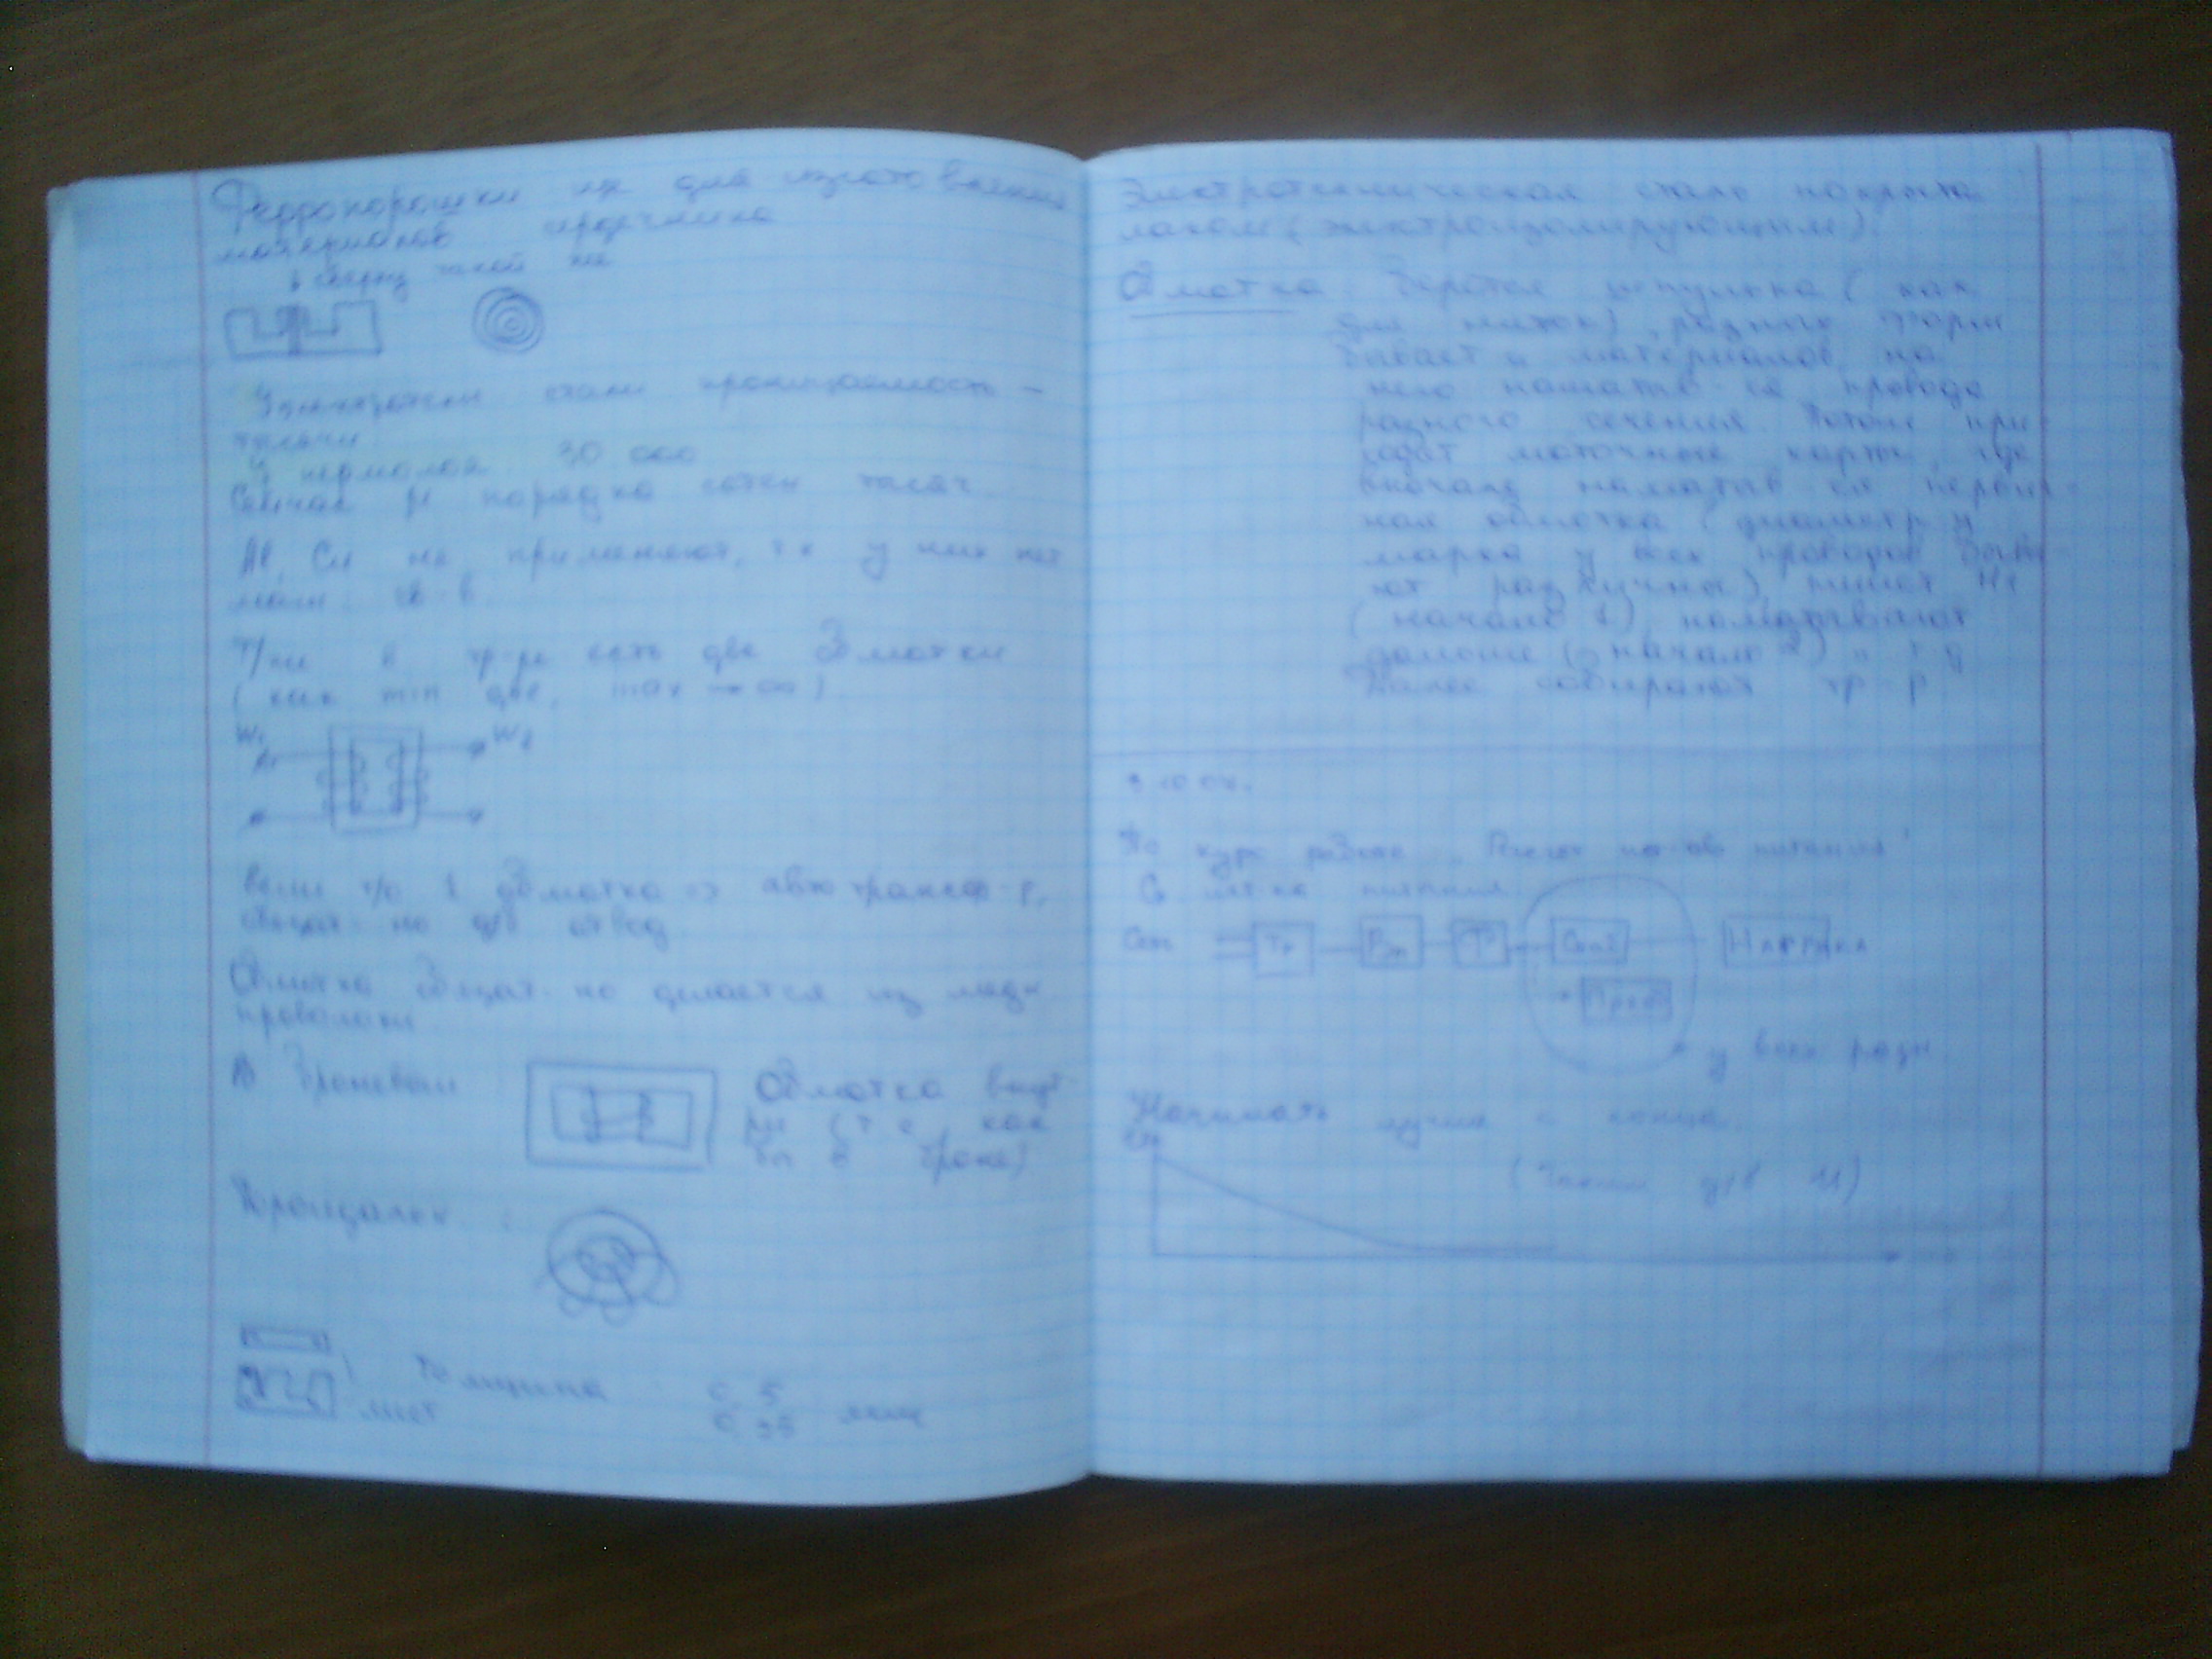 Ферропорошки их для изготовления
материалов сердечника
сверху такой же
У электротехн стали проницаемость –
тысячи
У пермалоя 30 000
Сейчас μ порядка сотен тысяч.
Al, Cu не применяют, т.к у них нет
магн. св-в.
Т/же в тр-ре есть две обмотки
(как min две, max → ∞)
W1
Если т/о 1 обмотка => автотрансф-р,
отвод
Обмотка обязат-но делается из медн
проволоки
В броневом
Обмотка внут-
ри (т е. как
бы в броне)
толщина 0,5
лист 0,35 мм
Электротехническая сталь покрыта
лаком (электроизолирующим).
Обмотка. Берется шпулька (как
для ниток), разных форм
бывает и материалов, на
него наматыв-ся провода
разного сечения. Потом при-
ходят моточные карты, где
вначале наматыв-ся первич-
ная обмотка (диаметр и
марка у всех проводов быва-
ют различны), пишет Н1
(начало 1), наматывают
дальше (начало 2) и т д
Далее собирают тр-р
По курс работе „Расчет ист-ов питания"
питания
Сеть Тр Вп Ф Стаб Нагрузка
Преоб
у всех разн
Начинать лучше с конца.